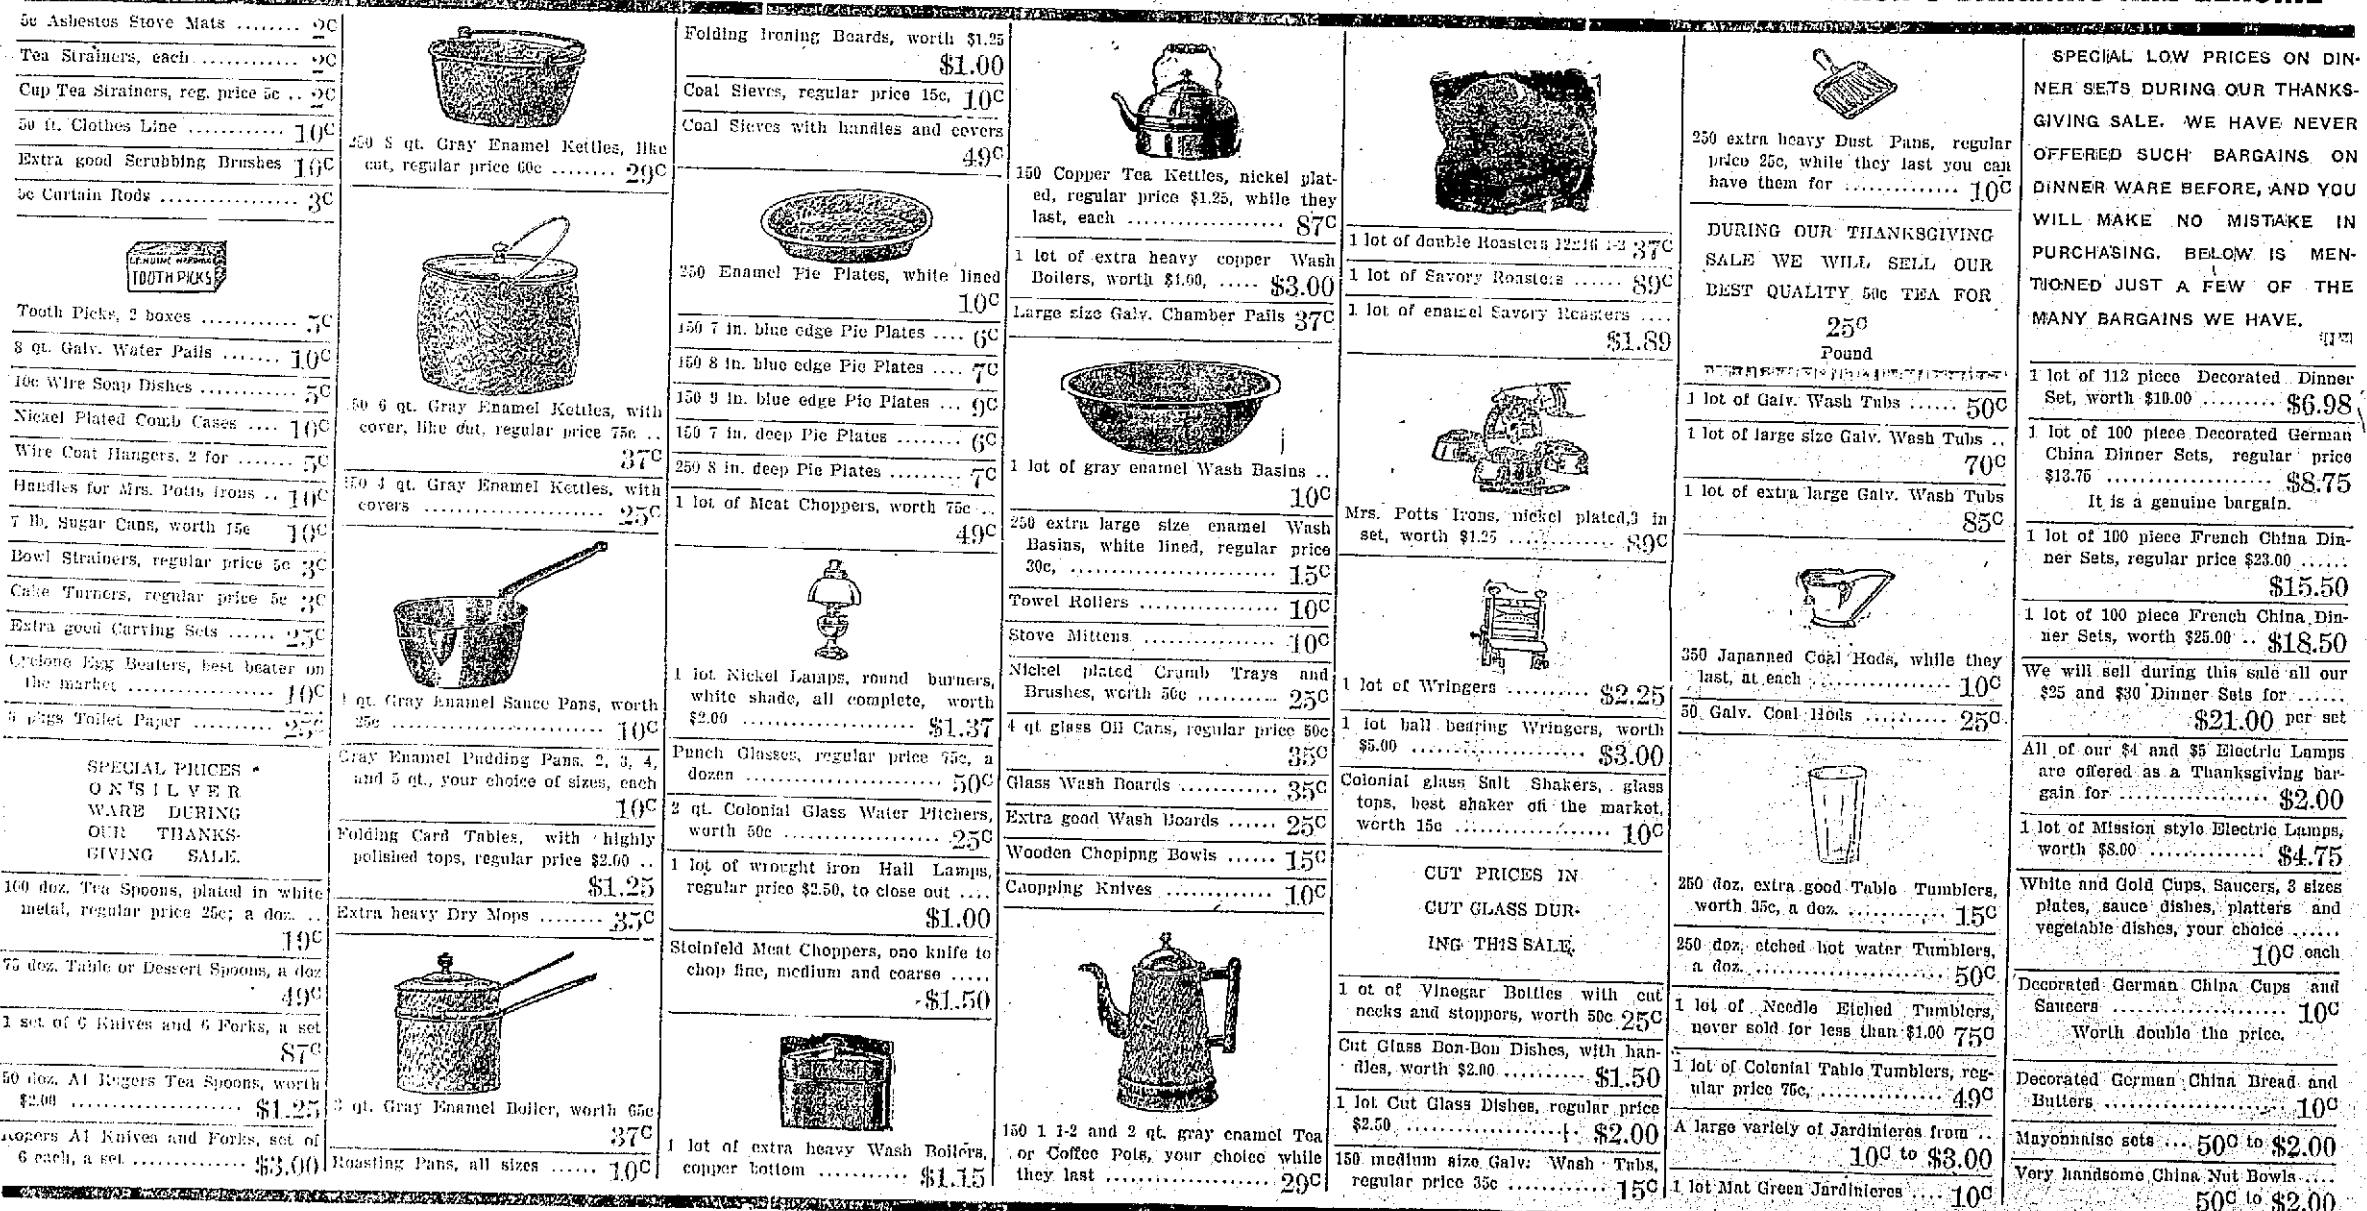 5c Asbestos Stove Mats ........ 2c
Tea Strainers, each ............ 2c
Cup Tea Strainers, reg. price 5c .. 2c
50 ft. Clothes Line ............ 10c
Extra good Scrubbing Brushes 10c
5c Curtain Rods ................ 3c
GENUINE HARDWOOD
TOOTH PICKS
Tooth Picks, 2 boxes ............ 5c
8 qt. Galv. Water Pails ....... 10c
10c Wire Soap Dishes ........... 5c
Nickel Plated Comb Cases .... 10c
Wire Coat Hangers, 2 for ....... 5c
Handles for Mrs. Potts irons .. 10c
7 lb. Sugar Cans, worth 15c 10c
Bowl Strainers, regular price 5c 3c
Cake Turners, regular price 5c 3c
Extra good Carving Sets ...... 25c
Cyclone Egg Beaters, best beater on
the market ................. 10c
5 pkgs Toilet Paper ......... 25c
SPECIAL PRICES
ON SILVER
WARE DURING
OUR THANKS-
GIVING SALE.
100 doz. Tea Spoons, plated in white
metal, regular price 25c; a doz. ..
19c
75 doz. Table or Dessert Spoons, a doz
49c
1 set of 6 Knives and 6 Forks, a set
87c
50 doz. A1 Rogers Tea Spoons, worth
$2.00 ..................... $1.25
Rogers A1 Knives and Forks, set of
6 each, a set .............. $3.00
250 8 qt. Gray Enamel Kettles, like
cut, regular price 60c ........ 29c
50 6 qt. Gray Enamel Kettles, with
cover, like cut, regular price 75c ..
37c
150 4 qt. Gray Enamel Kettles, with
covers ..................... 25c
1 qt. Gray Enamel Sauce Pans, worth
25c ........................ 10c
Gray Enamel Pudding Pans, 2, 3, 4,
and 5 qt., your choice of sizes, each
10c
Folding Card Tables, with highly
polished tops, regular price $2.00 ..
$1.25
Extra heavy Dry Mops ........ 35c
3 qt. Gray Enamel Boiler, worth 65c
37c
Roasting Pans, all sizes ...... 10c
Folding Ironing Boards, worth $1.25
$1.00
Coal Sieves, regular price 15c, 10c
Coal Sieves with handles and covers
49c
250 Enamel Pie Plates, white lined
10c
150 7 in. blue edge Pie Plates .... 6c
150 8 in. blue edge Pie Plates .... 7c
150 9 in. blue edge Pie Plates ... 9c
150 7 in. deep Pie Plates ........ 6c
250 8 in. deep Pie Plates ......... 7c
1 lot of Meat Choppers, worth 75c ..
49c
1 lot Nickel Lamps, round burners,
white shade, all complete, worth
$2.00 ..................... $1.37
Punch Glasses, regular price 75c, a
dozen ...................... 50c
2 qt. Colonial Glass Water Pitchers,
worth 50c .................. 25c
1 lot of wrought iron Hall Lamps,
regular price $2.50, to close out ....
$1.00
Steinfeld Meat Choppers, one knife to
chop fine, medium and coarse .....
$1.50
1 lot of extra heavy Wash Boilers,
copper bottom ............ $1.15
150 Copper Tea Kettles, nickel plat-
ed, regular price $1.25, while they
last, each .................. 87c
1 lot of extra heavy copper Wash
Boilers, worth $1.00, ..... $3.00
Large size Galv. Chamber Pails 37c
1 lot of gray enamel Wash Basins ..
10c
250 extra large size enamel Wash
Basins, white lined, regular price
30c, ........................ 15c
Towel Rollers ................ 10c
Stove Mittens ................ 10c
Nickel plated Crumb Trays and
Brushes, worth 50c .......... 25c
4 qt. glass Oil Cans, regular price 50c
35c
Glass Wash Boards ............ 35c
Extra good Wash Boards ...... 25c
Wooden Chopipng Bowls ...... 15c
Chopping Knives ............. 10c
150 1 1-2 and 2 qt. gray enamel Tea
or Coffee Pots, your choice while
they last .................... 29c
1 lot of double Roasters 12x16 1-2 37c
1 lot of Savory Roasters ...... 89c
1 lot of enamel Savory Roasters ....
$1.89
Mrs. Potts Irons, nickel plated,3 in
set, worth $1.25 ............. 89c
1 lot of Wringers .......... $2.25
1 lot ball bearing Wringers, worth
$5.00 ..................... $3.00
Colonial glass Salt Shakers, glass
tops, best shaker on the market,
worth 15c .................. 10c
CUT PRICES IN
CUT GLASS DUR-
ING THIS SALE.
1 ot of Vinegar Bottles with cut
necks and stoppers, worth 50c 25c
Cut Glass Bon-Bon Dishes, with han-
dles, worth $2.00 .......... $1.50
1 lot Cut Glass Dishes, regular price
$2.50 ..................... $2.00
150 medium size Galv. Wash Tubs,
regular price 35c ............ 15c
250 extra heavy Dust Pans, regular
price 25c, while they last you can
have them for .............. 10c
DURING OUR THANKSGIVING
SALE WE WILL SELL OUR
BEST QUALITY 50c TEA FOR
25c
Pound
1 lot of Galv. Wash Tubs ...... 50c
1 lot of large size Galv. Wash Tubs ..
70c
1 lot of extra large Galv. Wash Tubs
85c
350 Japanned Coal Hods, while they
last, at each ................ 10c
50 Galv. Coal Hods .......... 25c
250 doz. extra good Table Tumblers,
worth 35c, a doz. ............ 15c
250 doz. etched hot water Tumblers,
a doz. ...................... 50c
1 lot of Needle Etched Tumblers,
never sold for less than $1.00 75c
1 lot of Colonial Table Tumblers, reg-
ular price 75c, .............. 49c
A large variety of Jardinieres from ..
10c to $3.00
1 lot Mat Green Jardinieres .... 10c
SPECIAL LOW PRICES ON DIN-
NER SETS DURING OUR THANKS-
GIVING SALE. WE HAVE NEVER
OFFERED SUCH BARGAINS ON
DINNER WARE BEFORE, AND YOU
WILL MAKE NO MISTAKE IN
PURCHASING. BELOW IS MEN-
TIONED JUST A FEW OF THE
MANY BARGAINS WE HAVE.
1 lot of 112 piece Decorated Dinner
Set, worth $10.00 ......... $6.98
1 lot of 100 piece Decorated German
China Dinner Sets, regular price
$13.75 .................... $8.75
It is a genuine bargain.
1 lot of 100 piece French China Din-
ner Sets, regular price $23.00 ......
$15.50
1 lot of 100 piece French China Din-
ner Sets, worth $25.00 .. $18.50
We will sell during this sale all our
$25 and $30 Dinner Sets for ......
$21.00 per set
All of our $4 and $5 Electric Lamps
are offered as a Thanksgiving bar-
gain for .................. $2.00
1 lot of Mission style Electric Lamps,
worth $8.00 .............. $4.75
White and Gold Cups, Saucers, 3 sizes
plates, sauce dishes, platters and
vegetable dishes, your choice ......
10c each
Decorated German China Cups and
Saucers .................... 10c
Worth double the price.
Decorated German China Bread and
Butters .................... 10c
Mayonnaise sets ... 50c to $2.00
Very handsome China Nut Bowls ....
50c to $2.00